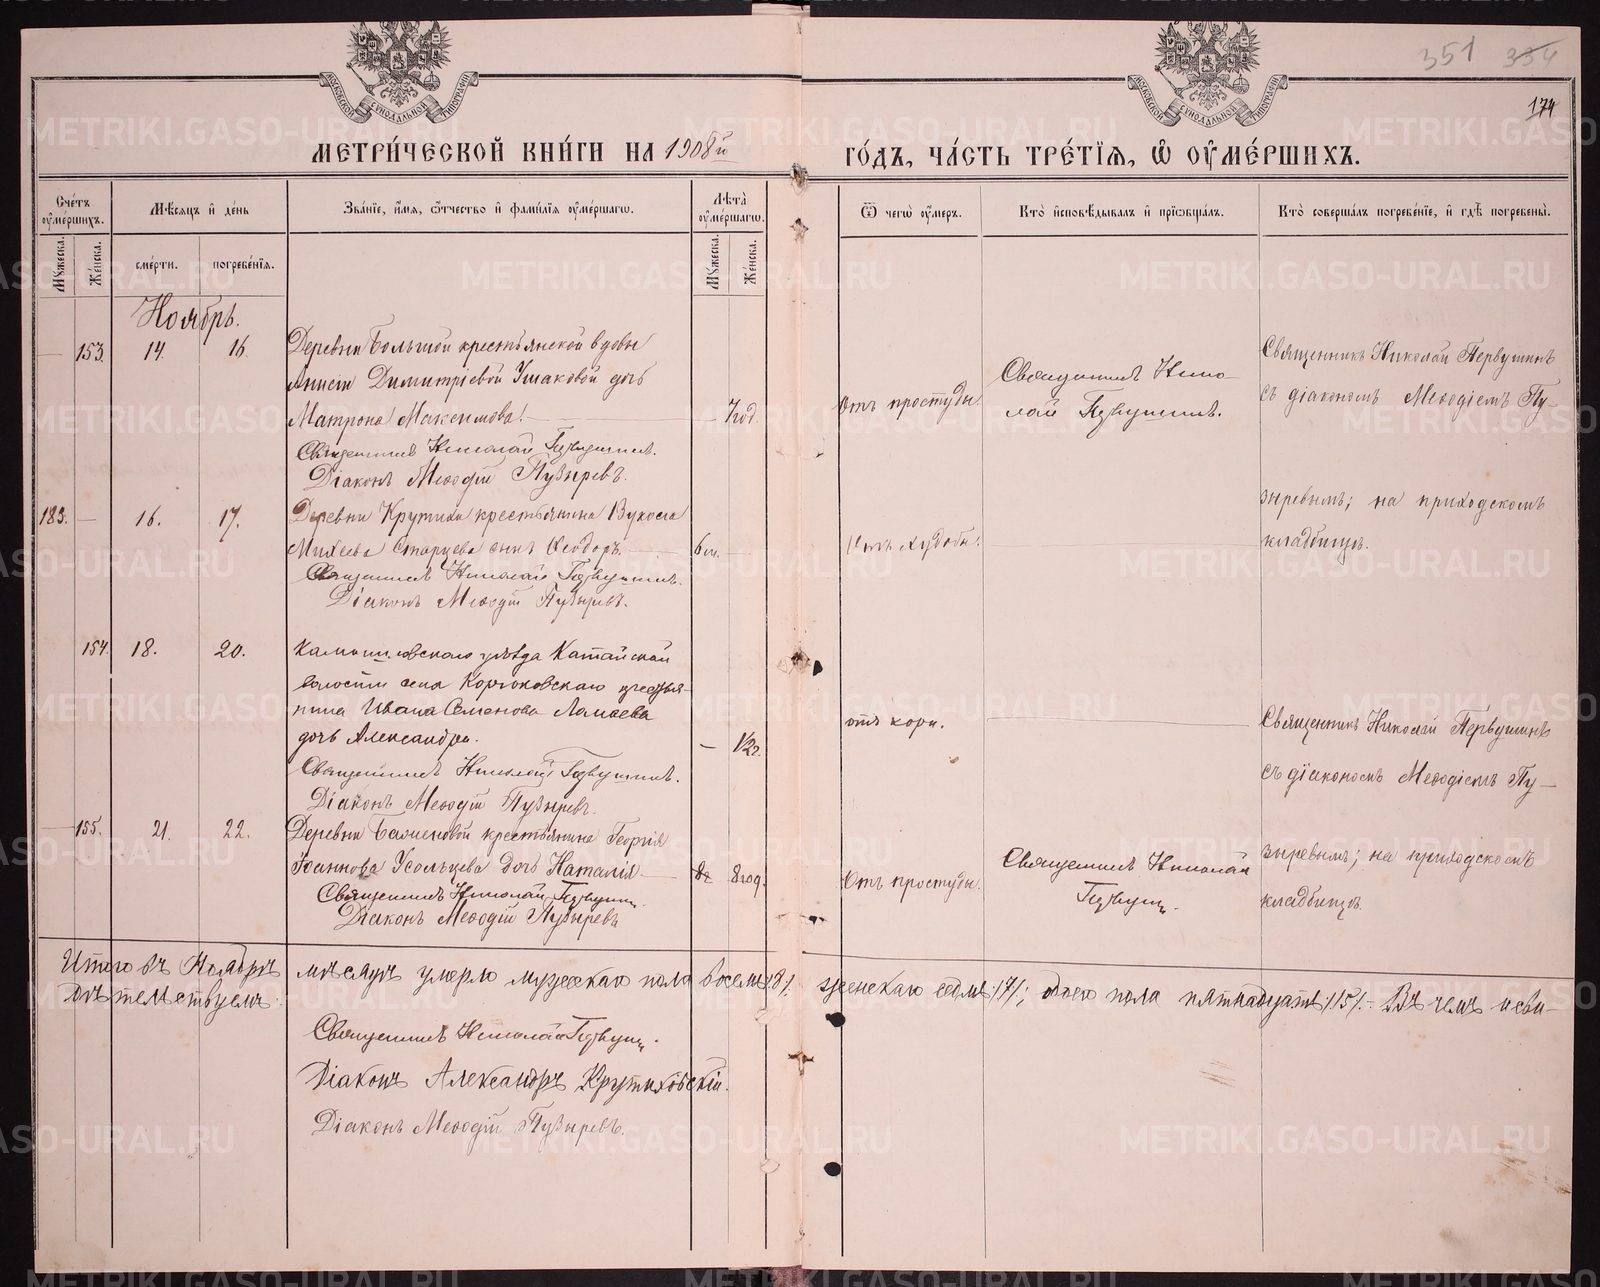 351 334
174
МОСКОВСКОЙ СѴНОДАЛЬНОЙ ТИПОГРАФІИ
МОСКОВСКОЙ СѴНОДАЛЬНОЙ ТИПОГРАФІИ
МЕТРИ́ЧЕСКОЙ КНИ́ГИ НА 1908й ГО́ДЪ, ЧА́СТЬ ТРЕ́ТІЯ, Ѡ ОУ҆МЕ́РШИХЪ.
Сче́тъ оу҆ме́ршихъ.
Мѣ́сяцъ и҆ де́нь
Зва́ніе, и҆́мя, ѻ҆́тчество и҆ фами́лія оу҆ме́ршагѡ.
Лѣта̀ оу҆ме́ршагѡ.
Ѿ чегѡ̀ оу҆́меръ.
Кто̀ и҆сповѣ́дывалъ и҆ прїѡбща́лъ.
Кто̀ соверша́лъ погребе́ніе, и҆ гдѣ̀ погребены̀.
Мꙋ́жеска.
Же́нска.
сме́рти.
погребе́нія.
Мꙋ́жеска.
Же́нска.
Ноябрь.
— 153. 14. 16. Деревни Большой крестьянской вдовы
Анисіи Димитріевой Ушаковой дочь
Матрона Максимова. — 7 год.
Священникъ Николай Первушинъ.
Діаконъ Меѳодій Пузыревъ.
Отъ простуды.
Священникъ Нико-
лай Первушинъ.
Священникъ Николай Первушинъ
съ діакономъ Меѳодіемъ Пу-
зыревымъ; на приходскомъ
кладбищѣ.
183. — 16. 17. Деревни Крутихи крестьянина Вукола
Михеева Старцева сынъ Ѳеодоръ. 6 м. —
Священникъ Николай Первушинъ.
Діаконъ Меѳодій Пузыревъ.
Отъ худобы.
154. 18. 20. Камышловскаго уѣзда Катайской
волости села Корюковскаго крестья-
нина Ивана Семенова Лапаева
дочь Александра. — 1/2 г.
Священникъ Николай Первушинъ.
Діаконъ Меѳодій Пузыревъ.
отъ кори.
Священникъ Николай Первушинъ
съ діакономъ Меѳодіемъ Пу-
зыревымъ; на приходскомъ
кладбищѣ.
— 155. 21. 22. Деревни Баженовой крестьянина Георгія
Іоаннова Усольцева дочь Наталія — 8 г 8 год.
Священникъ Николай Первушин.
Діаконъ Меѳодій Пузыревъ
Отъ простуды.
Священникъ Николай
Первушин.
Итого въ Ноябрѣ мѣсяцѣ умерло мужескаго пола восемь /8/. женскаго семь /7/; обоего пола пятнадцать /15/. — Въ чемъ и сви-
дѣтельствуемъ.
Священникъ Николай Первушин.
Діаконъ Александръ Крутиховскій.
Діаконъ Меѳодій Пузыревъ.
METRIKI.GASO-URAL.RU